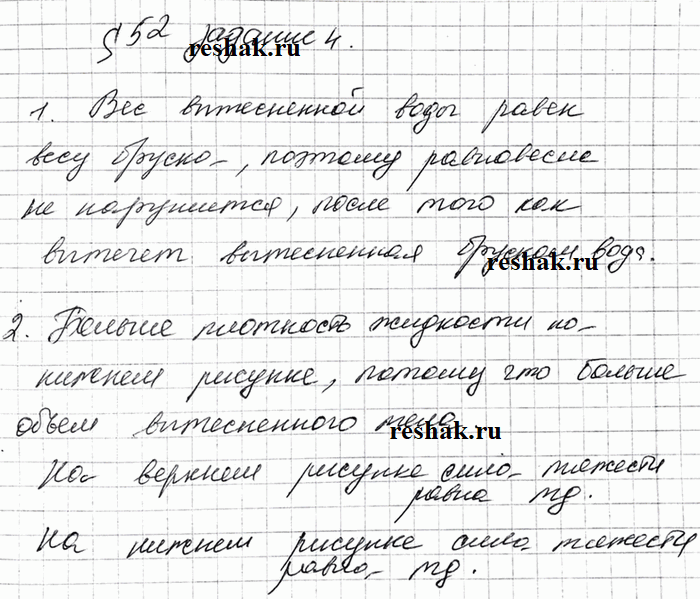 § 52 задание 4.
reshak.ru
1. Вес вытесненной воды равен
весу бруска, поэтому равновесие
не нарушится, после того как
вытечет вытесненная бруском вода.
reshak.ru
2. Больше плотность жидкости на
нижнем рисунке, потому что больше
объем вытесненного тела
reshak.ru
На верхнем рисунке сила тяжести
равна mg.
На нижнем рисунке сила тяжести
равна mg.